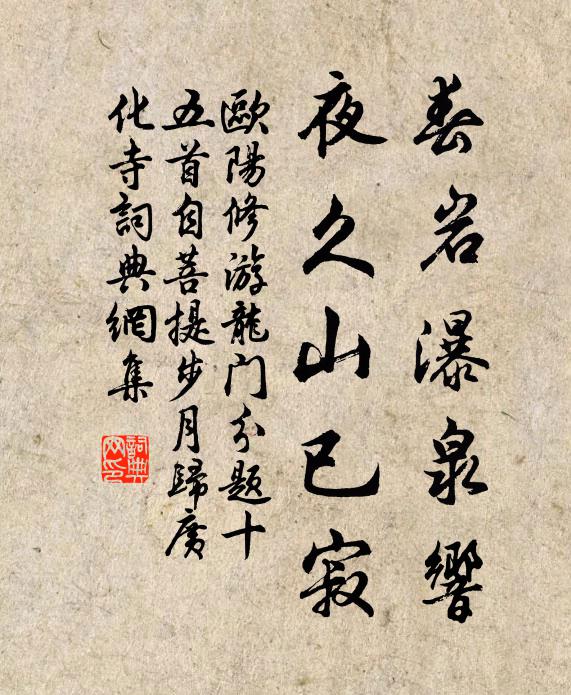 春岩瀑泉響
夜久山已寂
歐陽修游龍门分题十
五首自菩提步月歸廣
化寺詞典網集
詞典网印